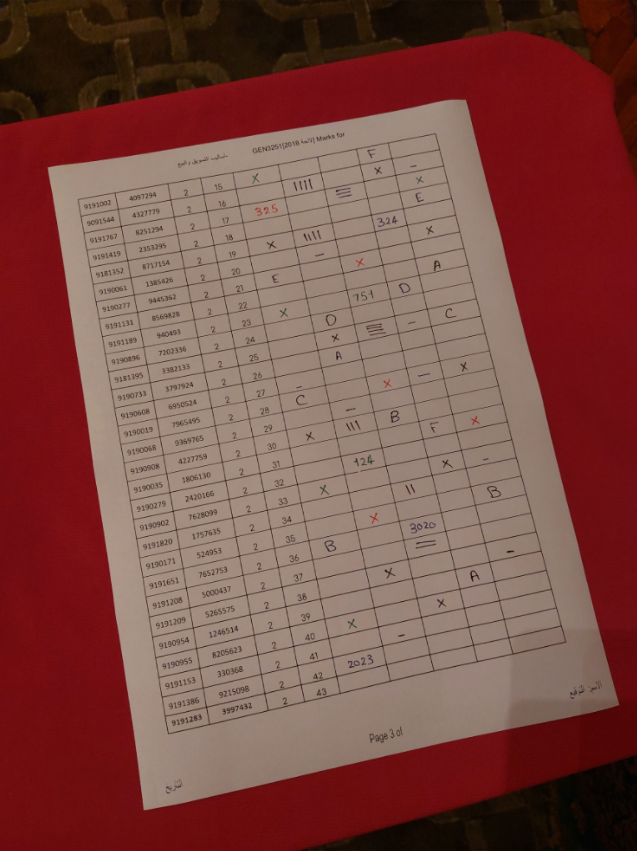 أساليب التسويق والبيع GEN3251[لائحة 2018] Marks for
9191002 4097294 2 15 X F
9091544 4327779 2 16 |||| X -
9191767 8251294 2 17 325 ≡ X
9191419 2353295 2 18 E
9181352 8717154 2 19 X |||| 324
9190061 1385426 2 20 - X
9190277 9445362 2 21 E X
9191131 8569828 2 22 A
9191189 940493 2 23 X 751 D
9190896 7202336 2 24 D
9181395 3382133 2 25 X ≡ - C
9190733 3797924 2 26 A
9190608 6950524 2 27 -
9190019 7965495 2 28 C X - X
9190068 9369765 2 29 -
9190908 4227759 2 30 X ||| B
9190035 1806130 2 31 F X
9190279 2420166 2 32 124
9190902 7628099 2 33 X X -
9191820 1757635 2 34 ||
9190171 524953 2 35 X B
9191651 7652753 2 36 B 3020
9191208 5000437 2 37 =
9191209 5265575 2 38 X -
9190954 1246514 2 39 A
9190955 8205623 2 40 X X
9191153 330368 2 41 -
9191386 9215098 2 42 2023
9191283 3997432 2 43
Page 3 of
التاريخ